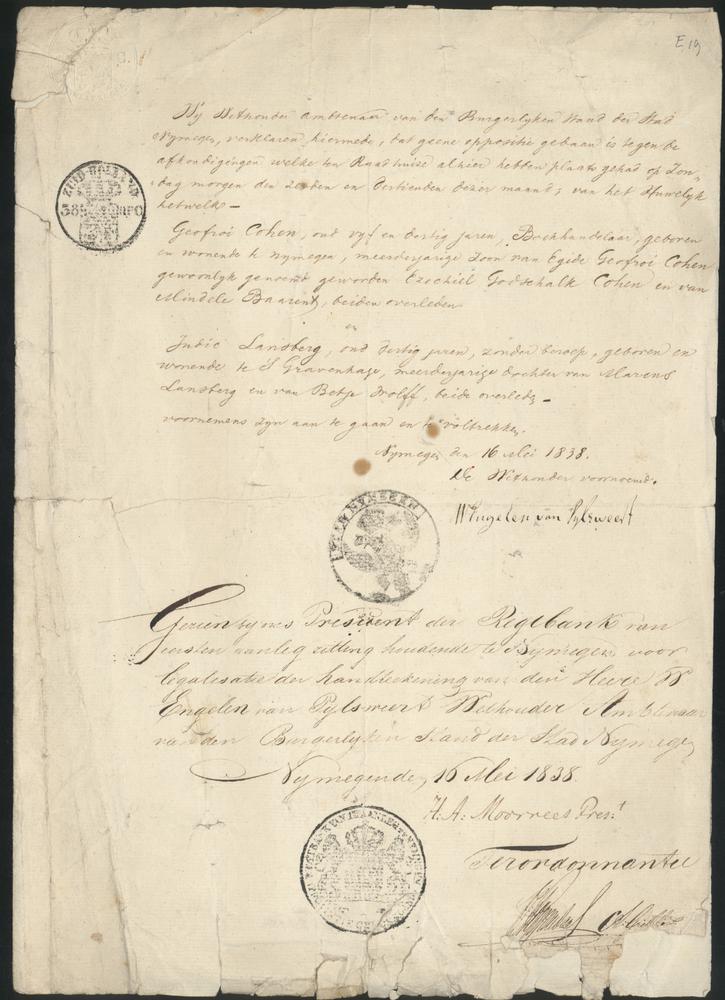 E 19
Wij Wethouder Ambtenaar van den Burgerlyken Stand der Stad
Nymegen, verklaren hiermede, dat geene oppositie gedaan is tegen de
afkondigingen welke ten Raadhuize alhier hebben plaats gehad op Zon-
dag morgen den zesden en dertienden dezer maand, van het Huwelyk
hetwelk -
ZUID-HOLLAND
Geofroi Cohen, oud vyf en dertig jaren, Boekhandelaar, geboren
en wonende te Nymegen, meerderjarige Zoon van Egide Geofroi Cohen
gewoonlyk genoemd geworden Ezechiël Godschalk Cohen en van
Mindele Baarent, beiden overleden
en
Judic Lansberg, oud dertig jaren, zonder beroep, geboren en
wonende te S Gravenhage, meerderjarige dochter van Marcus
Lansberg en van Betje Wolff, beide overleden -
voornemens zyn aan te gaan en te voltrekken.
Nymegen den 16 Mei 1838.
De Wethouder voornoemd.
W Engelen van Pylsweert
Gezien by ons President der Regtbank van
eersten aanleg zitting houdende te Nymegen voor
legalisatie der handteekening van den Heere W
Engelen van Pylsweert Wethouder Ambtenaar
van den Burgerlyken Stand der Stad Nymegen
Nymegen den 16 Mei 1838.
H. A. Moorrees Pres.t
Ter ordonnantie